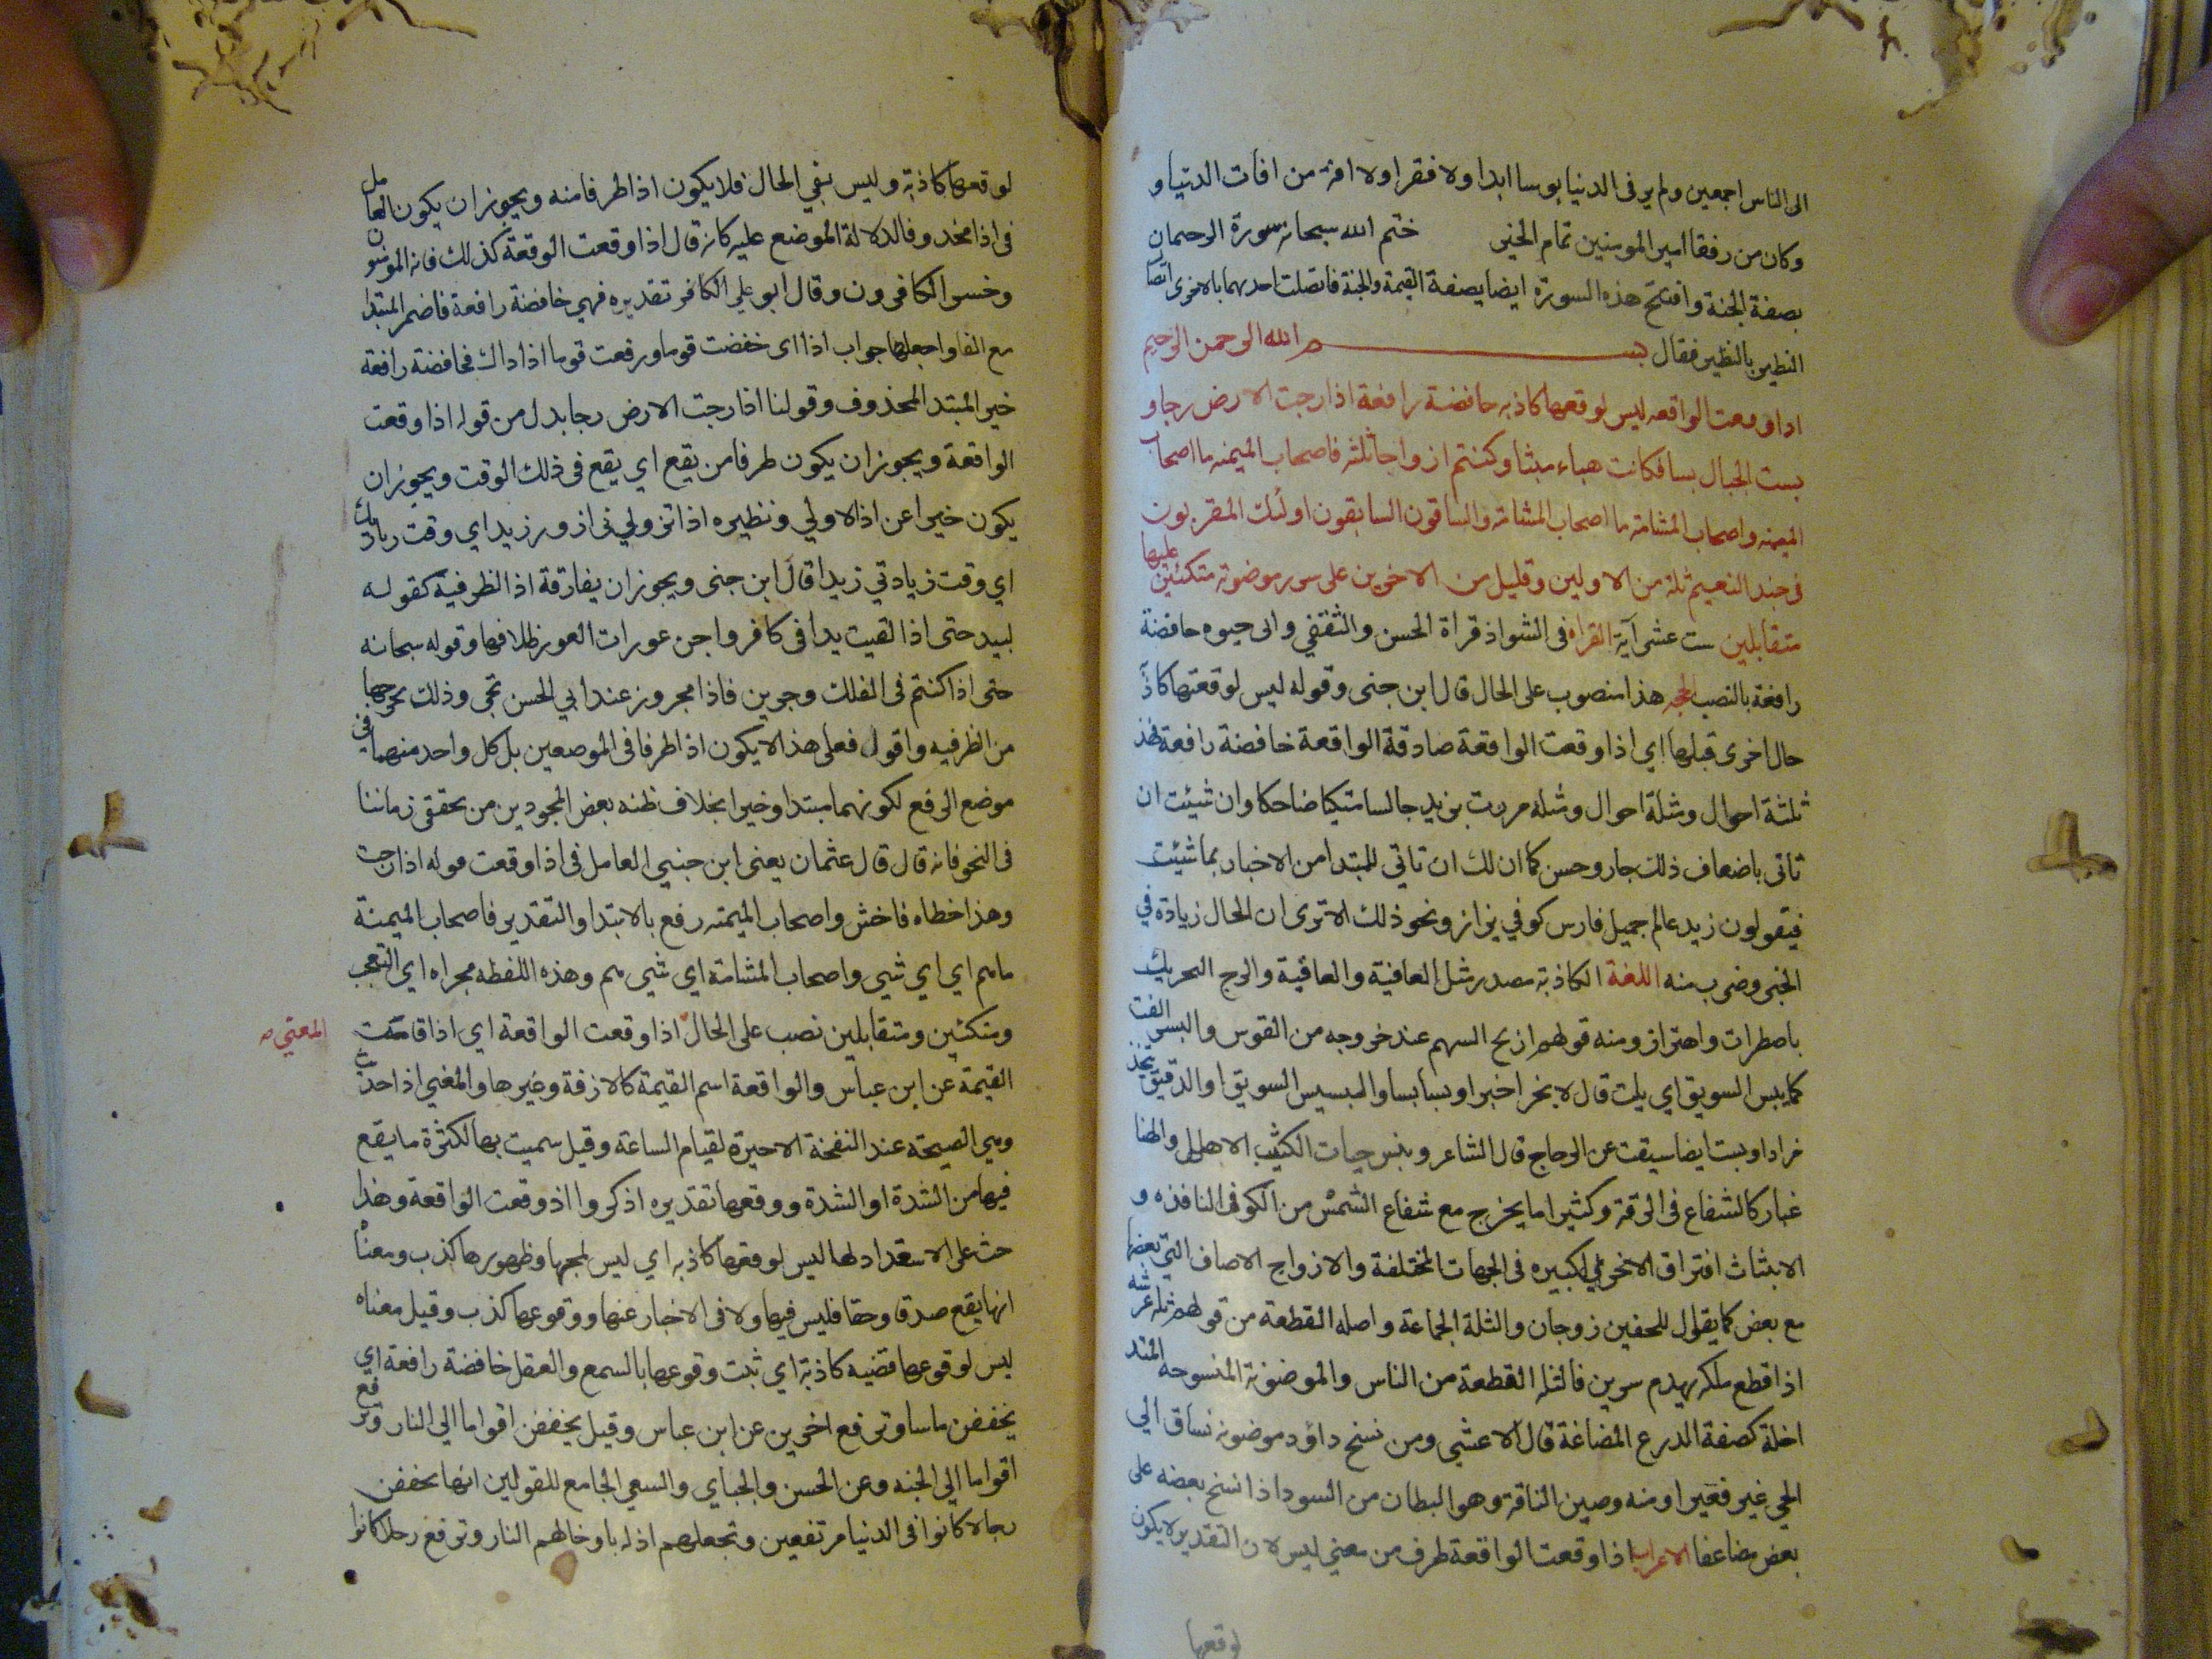 الى الناس اجمعين ولم ير فى الدنيا بوسا ابدا ولا فقرا ولا افة من افات الدنيا و
وكان من رفقا امير المومنين تمام الخبر ختم الله سبحانه سورة الرحمان
بصفة الجنة وافتتح هذه السورة ايضا بصفة القيمة والجنة فاتصلت احديهما بالاخرى اتصال
النظير بالنظير فقال بسم الله الرحمن الرحيم
اذا وقعت الواقعه ليس لوقعتها كاذبه خافضة رافعة اذا رجت الارض رجا و
بست الجبال بسا فكانت هباء منبثا وكنتم ازواجا ثلثه فاصحاب الميمنه ما اصحاب
الميمنه واصحاب المشامة ما اصحاب المشامة والسابقون السابقون اولئك المقربون
فى جنت النعيم ثلة من الاولين وقليل من الاخرين على سرر موضونه متكئين عليها
متقابلين ست عشر آية القراه فى الشواذ قراة الحسن والثقفي وابى حيوه خافضة
رافعة بالنصب الحجه هذا منصوب على الحال قال ابن جنى وقوله ليس لوقعتها كاذبة
حال اخرى قبلها اي اذا وقعت الواقعة صادقة الواقعة خافضة رافعة فهذه
ثلثة احوال ومثله مررت بزيد جالسا متكيا ضاحكا وان شيئت ان
تاتى باضعاف ذلك جاز وحسن كما ان لك ان تاتي للمبتدا من الاخبار بما شيئت
فيقولون زيد عالم جميل فارس كوفي بزاز ونحو ذلك الا ترى ان الحال زيادة في
الخبر وضرب منه اللغة الكاذبة مصدر مثل العافية والعاقبة والرج التحريك
باضطراب واهتزاز ومنه قولهم ارتج السهم عند خروجه من القوس والبس الفت
كما يبس السويق اي يلت قال لا تخبزا خبزا وبسا بسا والبسيس السويق او الدقيق يتخذ
زادا وبست ايضا سيقت عن الزجاج قال الشاعر وانبس حيات الكثيب الاهيل والهبا
غبار كالشعاع فى الرقة وكثيرا ما يخرج مع شعاع الشمس من الكوة النافذه و
الانبثاث افتراق الاجزا الكثيره فى الجهات المختلفة والازواج الاصناف التي بعضها
مع بعض كما يقال للخفين زوجان والثلة الجماعة واصله القطعة من قولهم ثل عرشه
اذا قطع ملكه بهدم سريره فالثلة القطعة من الناس والموضونة المنسوجه المتد
اخلة كصفة الدرع المضاعفة قال الاعشى ومن نسج داود موضونة تساق الي
الحي عيرا فعيرا ومنه وضين الناقة وهو البطان من السيور اذا نسج بعضه على
بعض مضاعفا الاعراب اذا وقعت الواقعة ظرف من معنى ليس لان التقدير لا يكون
لوقعتها
لوقعتها كاذبة وليس نفي الحال فلا يكون اذا ظرفا منه ويجوز ان يكون العامل
فى اذا محذوفا لدلالة الموضع عليه كانه قال اذا وقعت الوقعة كذلك فاز المومنون
وخسر الكافرون وقال ابو علي الكافر تقديره فهي خافضة رافعة فاضمر المبتدا
مع الفا واجعلها جواب اذا اى خفضت قوما ورفعت قوما اذا ذاك فخافضة رافعة
خبر المبتدا المحذوف وقولنا اذا رجت الارض رجا بدل من قوله اذا وقعت
الواقعة ويجوز ان يكون ظرفا من يقع اي يقع فى ذلك الوقت ويجوز ان
يكون خبرا عن اذا الاولي ونظيره اذا تزورني اذا ازور زيدا اي وقت زيارتك
اي وقت زيادتي زيدا قال ابن جنى ويجوز ان يفارقة اذا الظرفية كقوله
لبيد حتى اذا القيت يدا فى كافر واجن عورات الثغور ظلامها وقوله سبحانه
حتى اذا كنتم فى الفلك وجرين فاذا مجرور عند ابي الحسن بحتى وذلك يخرجها
من الظرفيه واقول فعلى هذا لا يكون اذا ظرفا فى الموضعين بل كل واحد منهما في
موضع الرفع لكونهما مبتدا وخبرا بخلاف ظنه بعض المجودين من محققى زماننا
فى النحو فانه قال قال عثمان يعنى ابن جنيي العامل فى اذا وقعت قوله اذا رجت
وهذا خطاء فاحش واصحاب الميمنه رفع بالابتدا والتقدير فاصحاب الميمنة
ما هم اي اي شيي واصحاب المشامة اي شيي هم وهذه اللفظه مجراه اي التعجب
ومتكئين ومتقابلين نصب على الحال اذا وقعت الواقعة اي اذا قامت المعنى
القيمة عن ابن عباس والواقعة اسم القيمة كالازفة وغيرها والمعني اذا حدثت
وهي الصيحة عند النفخة الاخيرة لقيام الساعة وقيل سميت بها لكثرة ما يقع
فيها من الشدة او لشدة ووقعها تقديره اذكروا اذ وقعت الواقعة وهذا
حث على الاستعداد لها ليس لوقعتها كاذبه اي ليس لمجيها وظهورها كذب ومعناه
انها يقع صدقا وحقا فليس فيها ولا فى الاخبار عنها ووقوعها كذب وقيل معناه
ليس لوقوعها قضيه كاذبة اي ثبت وقوعها بالسمع والعقل خافضة رافعة اي
يخفض ناسا وترفع اخرين عن ابن عباس وقيل يخفض اقواما الي النار وترفع
اقواما الي الجنه وعن الحسن والجباي والمعنى الجامع للقولين انها يخفض
رجالا كانوا فى الدنيا مرتفعين وتجعلهم اذلة بادخالهم النار وترفع رجالا كانوا